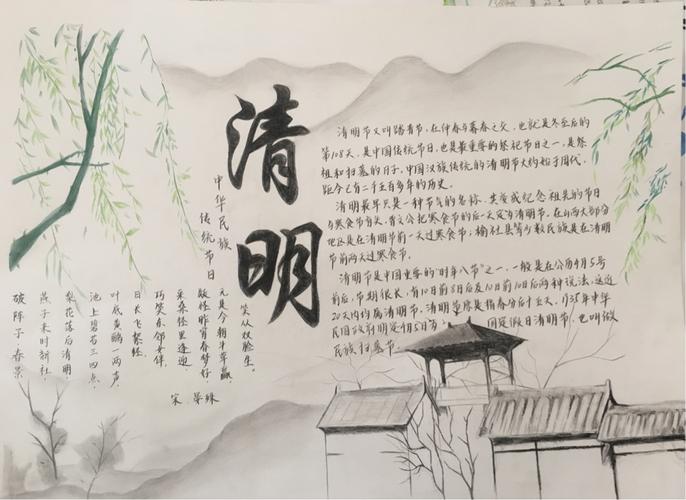 清明
中华民族
传统节日
清明节又叫踏青节,在仲春与暮春之交,也就是冬至后的
第108天,是中国传统节日,也是最重要的祭祀节日之一,是祭
祖和扫墓的日子。中国汉族传统的清明节大约始于周代,
距今已有二千五百多年的历史。
清明最早只是一种节气的名称,其变成纪念祖先的节日
与寒食节有关。晋文公把寒食节的后一天定为清明节。在山西大部分
地区是在清明节前一天过寒食节;榆社县等少数民族是在清明
节前两天过寒食节。
清明节是中国重要的"时年八节"之一,一般是在公历4月5号
前后,节期很长,有10日前8日后及10日前10日后两种说法,这近
20天内均属清明节。清明节原是指春分后十五天,1935年中华
民国政府明定4月5日为 国定假日清明节,也叫做
民族扫墓节。
破阵子·春景
燕子来时新社,
梨花落后清明。
池上碧苔三四点,
叶底黄鹂一两声,
日长飞絮轻。
巧笑东邻女伴,
采桑径里逢迎。
疑怪昨宵春梦好,
元是今朝斗草赢,
笑从双脸生。
宋 晏殊